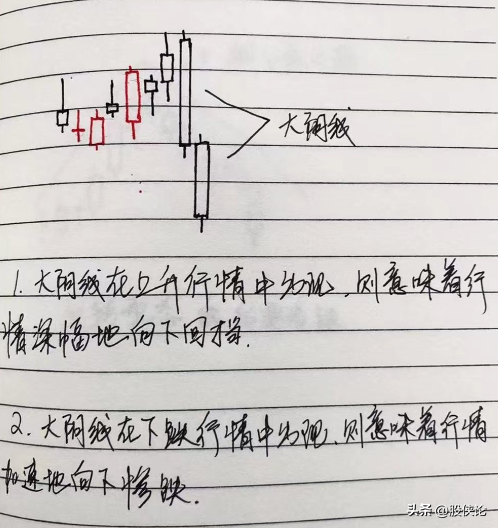 大阴线
1. 大阴线在上升行情中出现、则意味着行
情深幅地向下回档.
2. 大阴线在下跌行情中出现、则意味着行情
加速地向下惨跌.
头条@股侠论